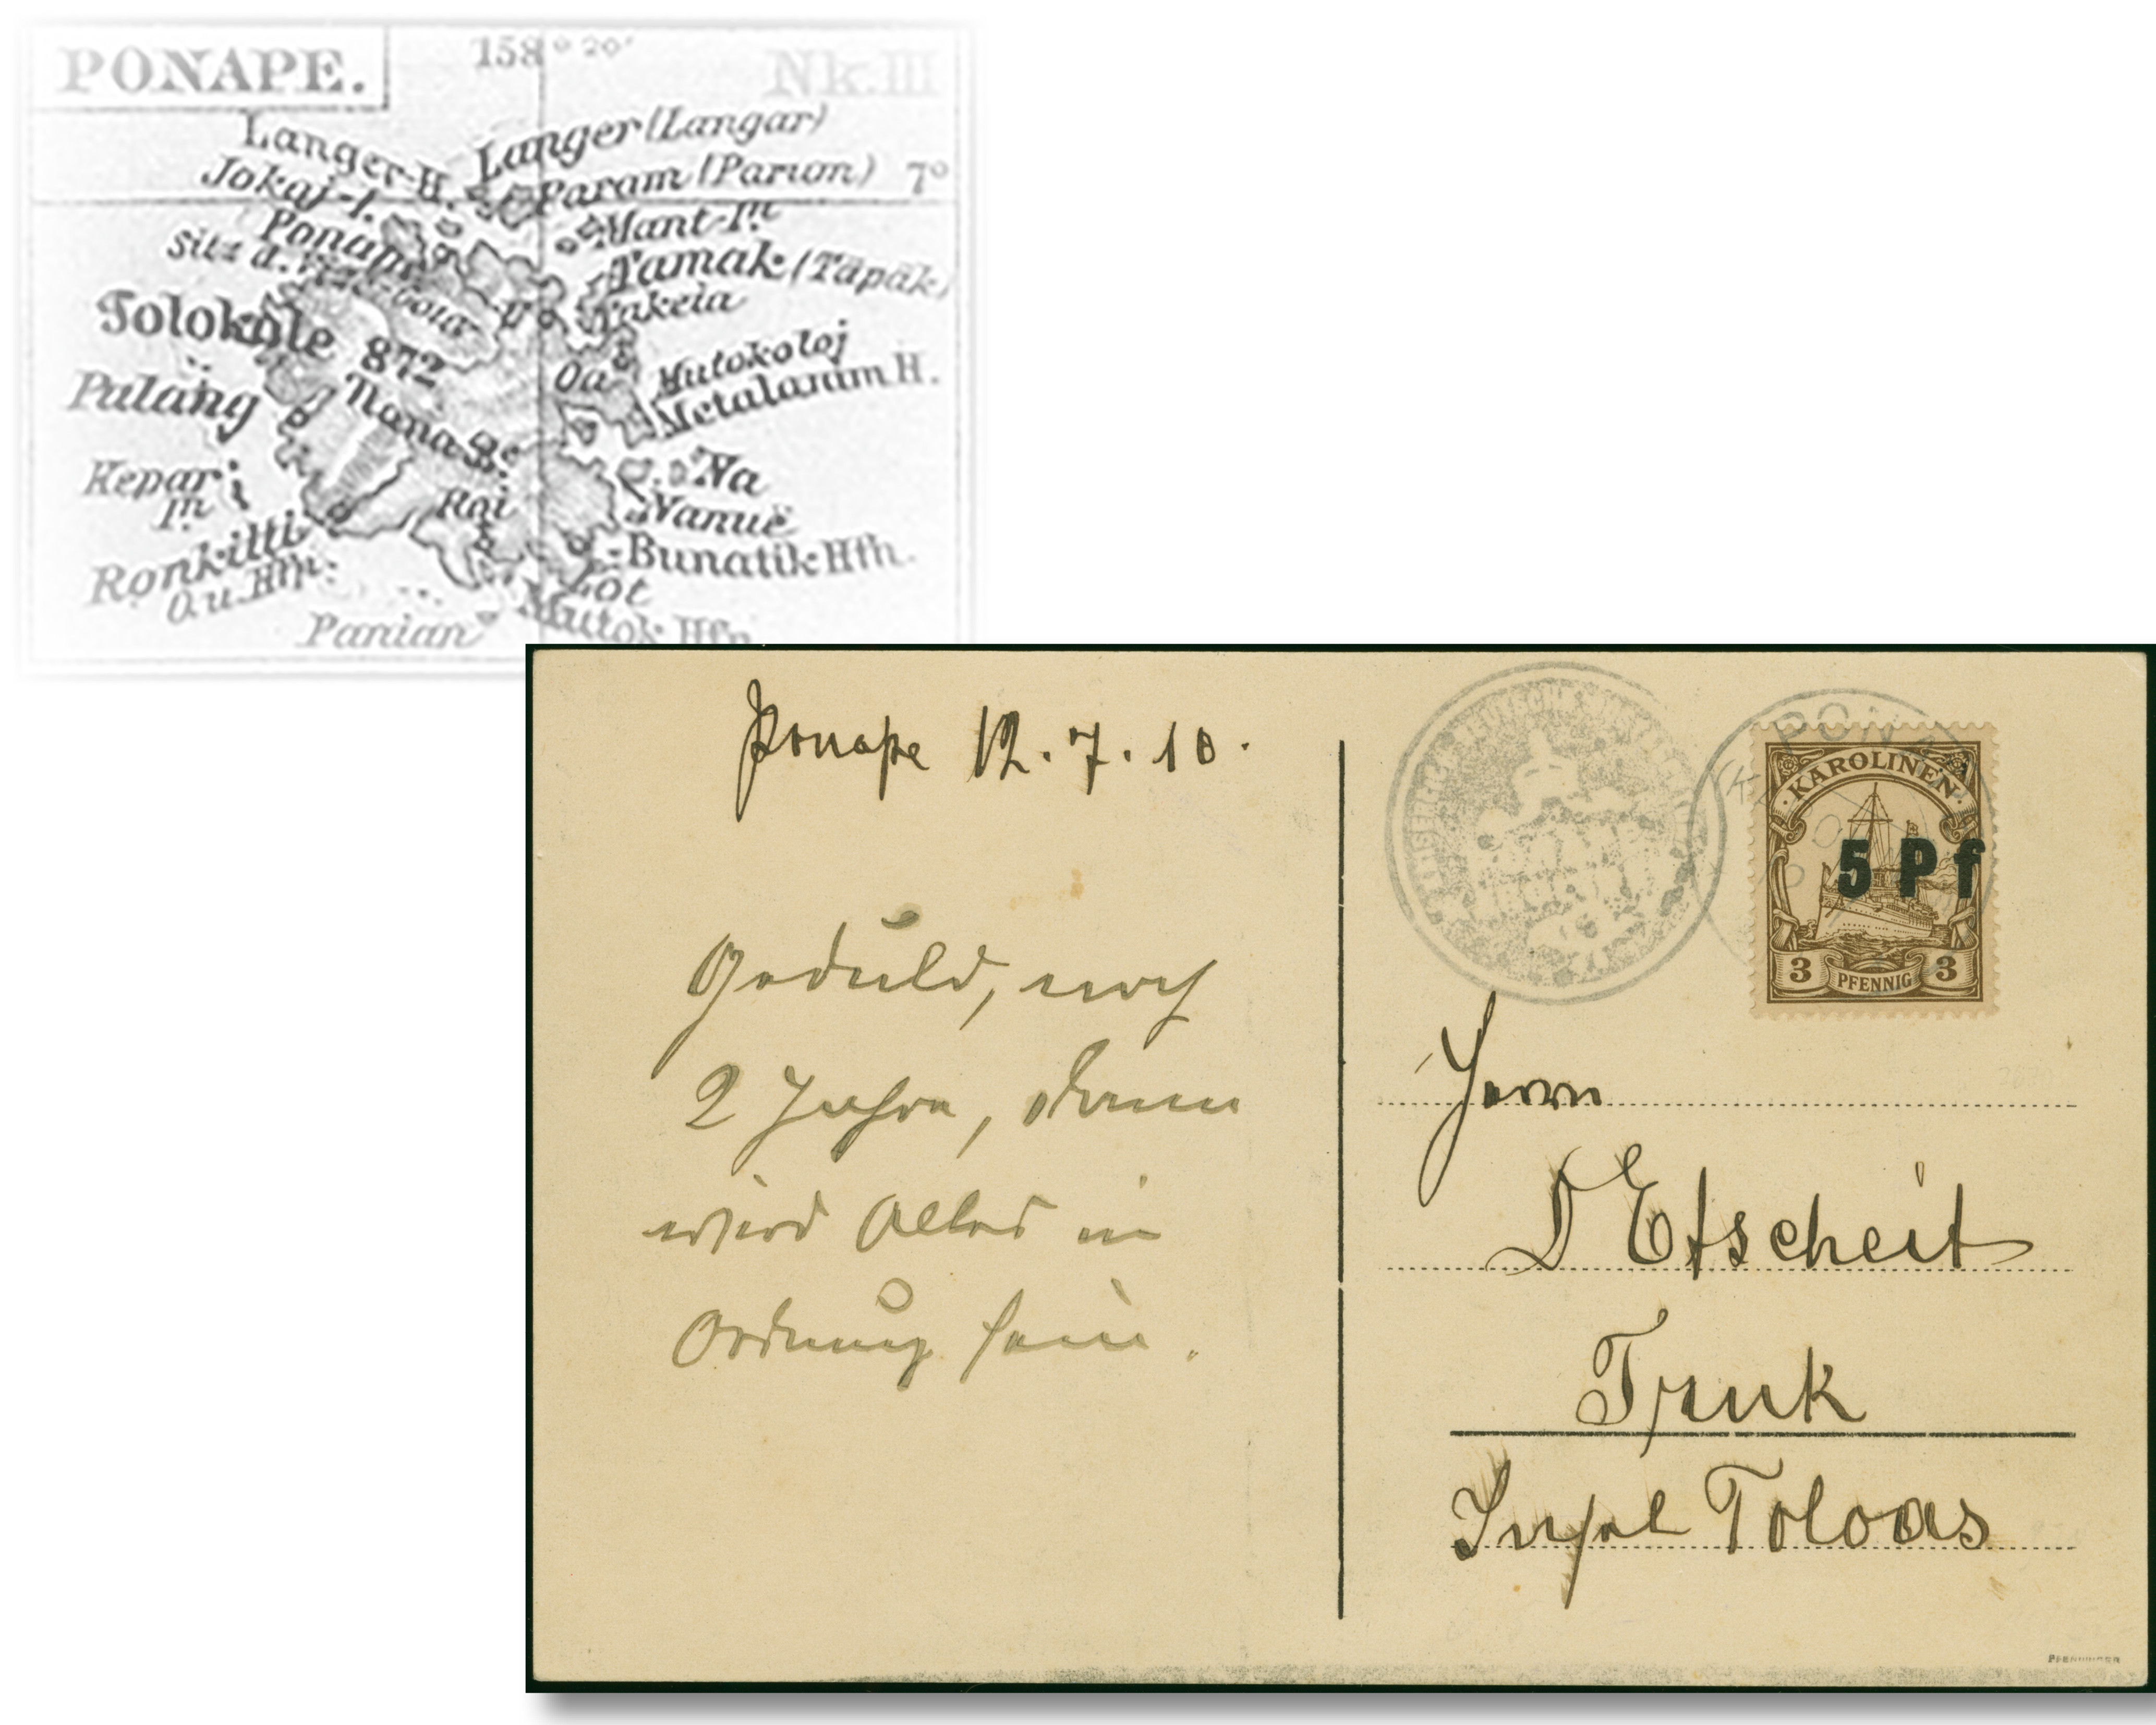 PONAPE.
158° 20'
Nk.III
Langer-H.
Langer (Langar)
Jokaj-I.
Param (Parum)
7°
Ponape
Mant-In
Sitz d.
Tamak (Täpäk)
Takeia
Tolokole
872
Oa
Mutokoloj
Metalanim H.
Pulang
Nana B.
Na
Kepar
In
Roi
Nanue
Ronkitti
O.u.Hfn.
Bunatik Hfn.
Lot
Mutok Hfn
Panian
Ponape 12.7.10.
Geduld, noch
2 Jahre, dann
wird Alles in
Ordnung sein.
PONAPE
KAROLINEN
5 Pf
3 PFENNIG 3
Herrn
D Etscheit
Truk
Insel Toloas
PFENNINGER